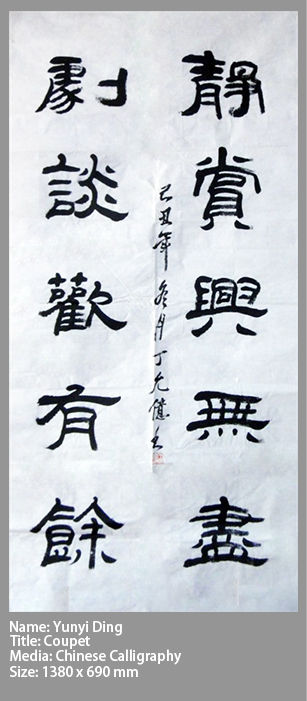 靜賞興無盡
劇談歡有餘
己丑年冬月丁允億書
Name: Yunyi Ding
Title: Coupet
Media: Chinese Calligraphy
Size: 1380 x 690 mm